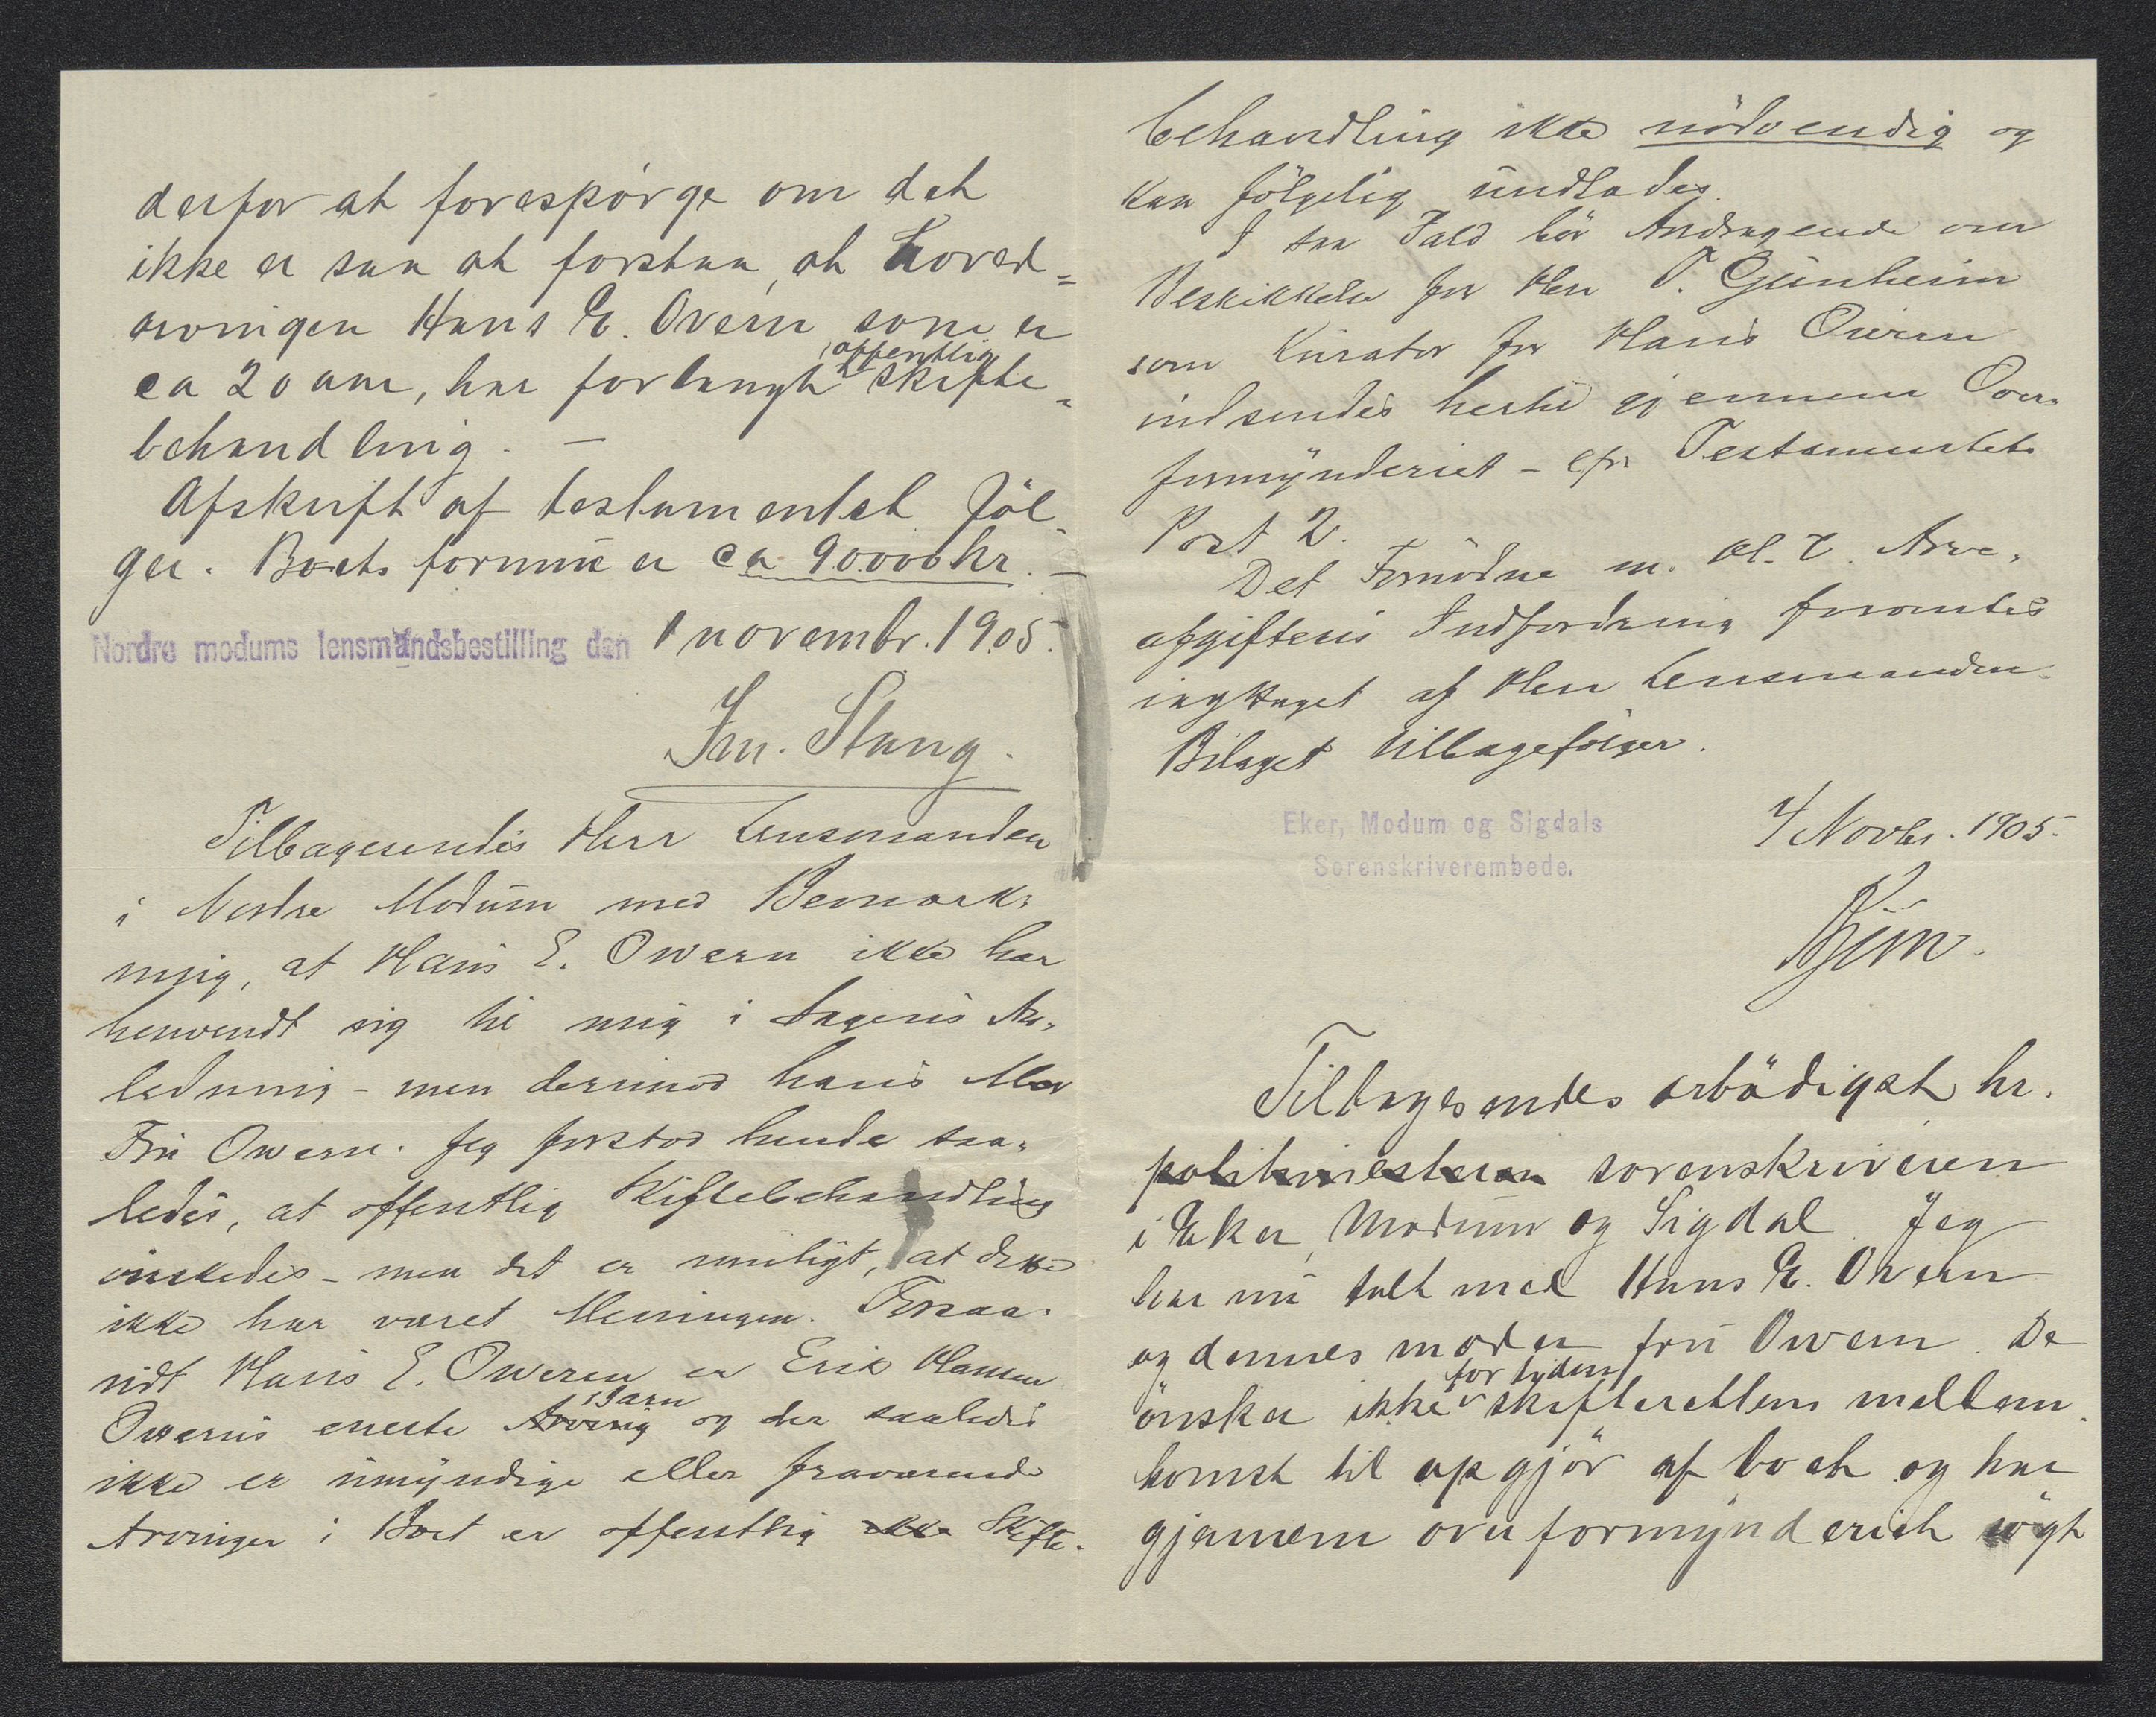 derfor at forespørge om det
ikke er saa at forstaa, at hoved=
arvingen Hans E. Overn som er
ca 20 aar, har forlangt offentlig skifte=
behandling. —
Afskrift af testamentet föl-
ger. Boets formue er ca 90000 kr. —
Nordre modums lensmandsbestilling den 1 novembr. 1905.
Jm. Stang.
Tilbagesendes Herr Lensmanden
i Nordre Modum med Bemærk-
ning, at Hans E. Owern ikke har
henvendt sig til mig i Sagens An-
ledning - men derimod hans Mor
Fru Owern. Jeg forstod hende saa-
ledes, at offentlig Skiftebehandling
önskedes - men det er muligt, at dette
ikke har været Meningen. Forsaa-
vidt Hans E. Oweren er Erik Hansen
Owerns eneste Arving Barn og der saaledes
ikke er umyndige eller fraværende
Arvinger i Boet er offentlig ikke Skifte-
behandling ikke nödvendig og
kan fölgelig undlades.
I saa Fald bör Andragende om
Beskikkelse for Herr T. Gjünheim
som Kurator for Hans Oweren
indsendes hertil gjennem Over-
formynderiet - efr Testamentets
Post 2.
Det Fornödne m. H. t. Arve-
afgiftens Indfordring forventes
iagttaget af Herr Lensmanden.
Bilaget tilbagefölger.
Eker, Modum og Sigdals
Sorenskriverembede.
4 Novbr. 1905.
Tilbagesendes ærbödigst hr.
politimesteren sorenskriveren
i Eker, Modum og Sigdal. Jeg
har nu talt med Hans E. Owern
og dennes moder fru Owern. De
önsker ikke for tiden skifterettens mellem-
komst til opgjör af boet og har
gjennem overformynderiet sögt